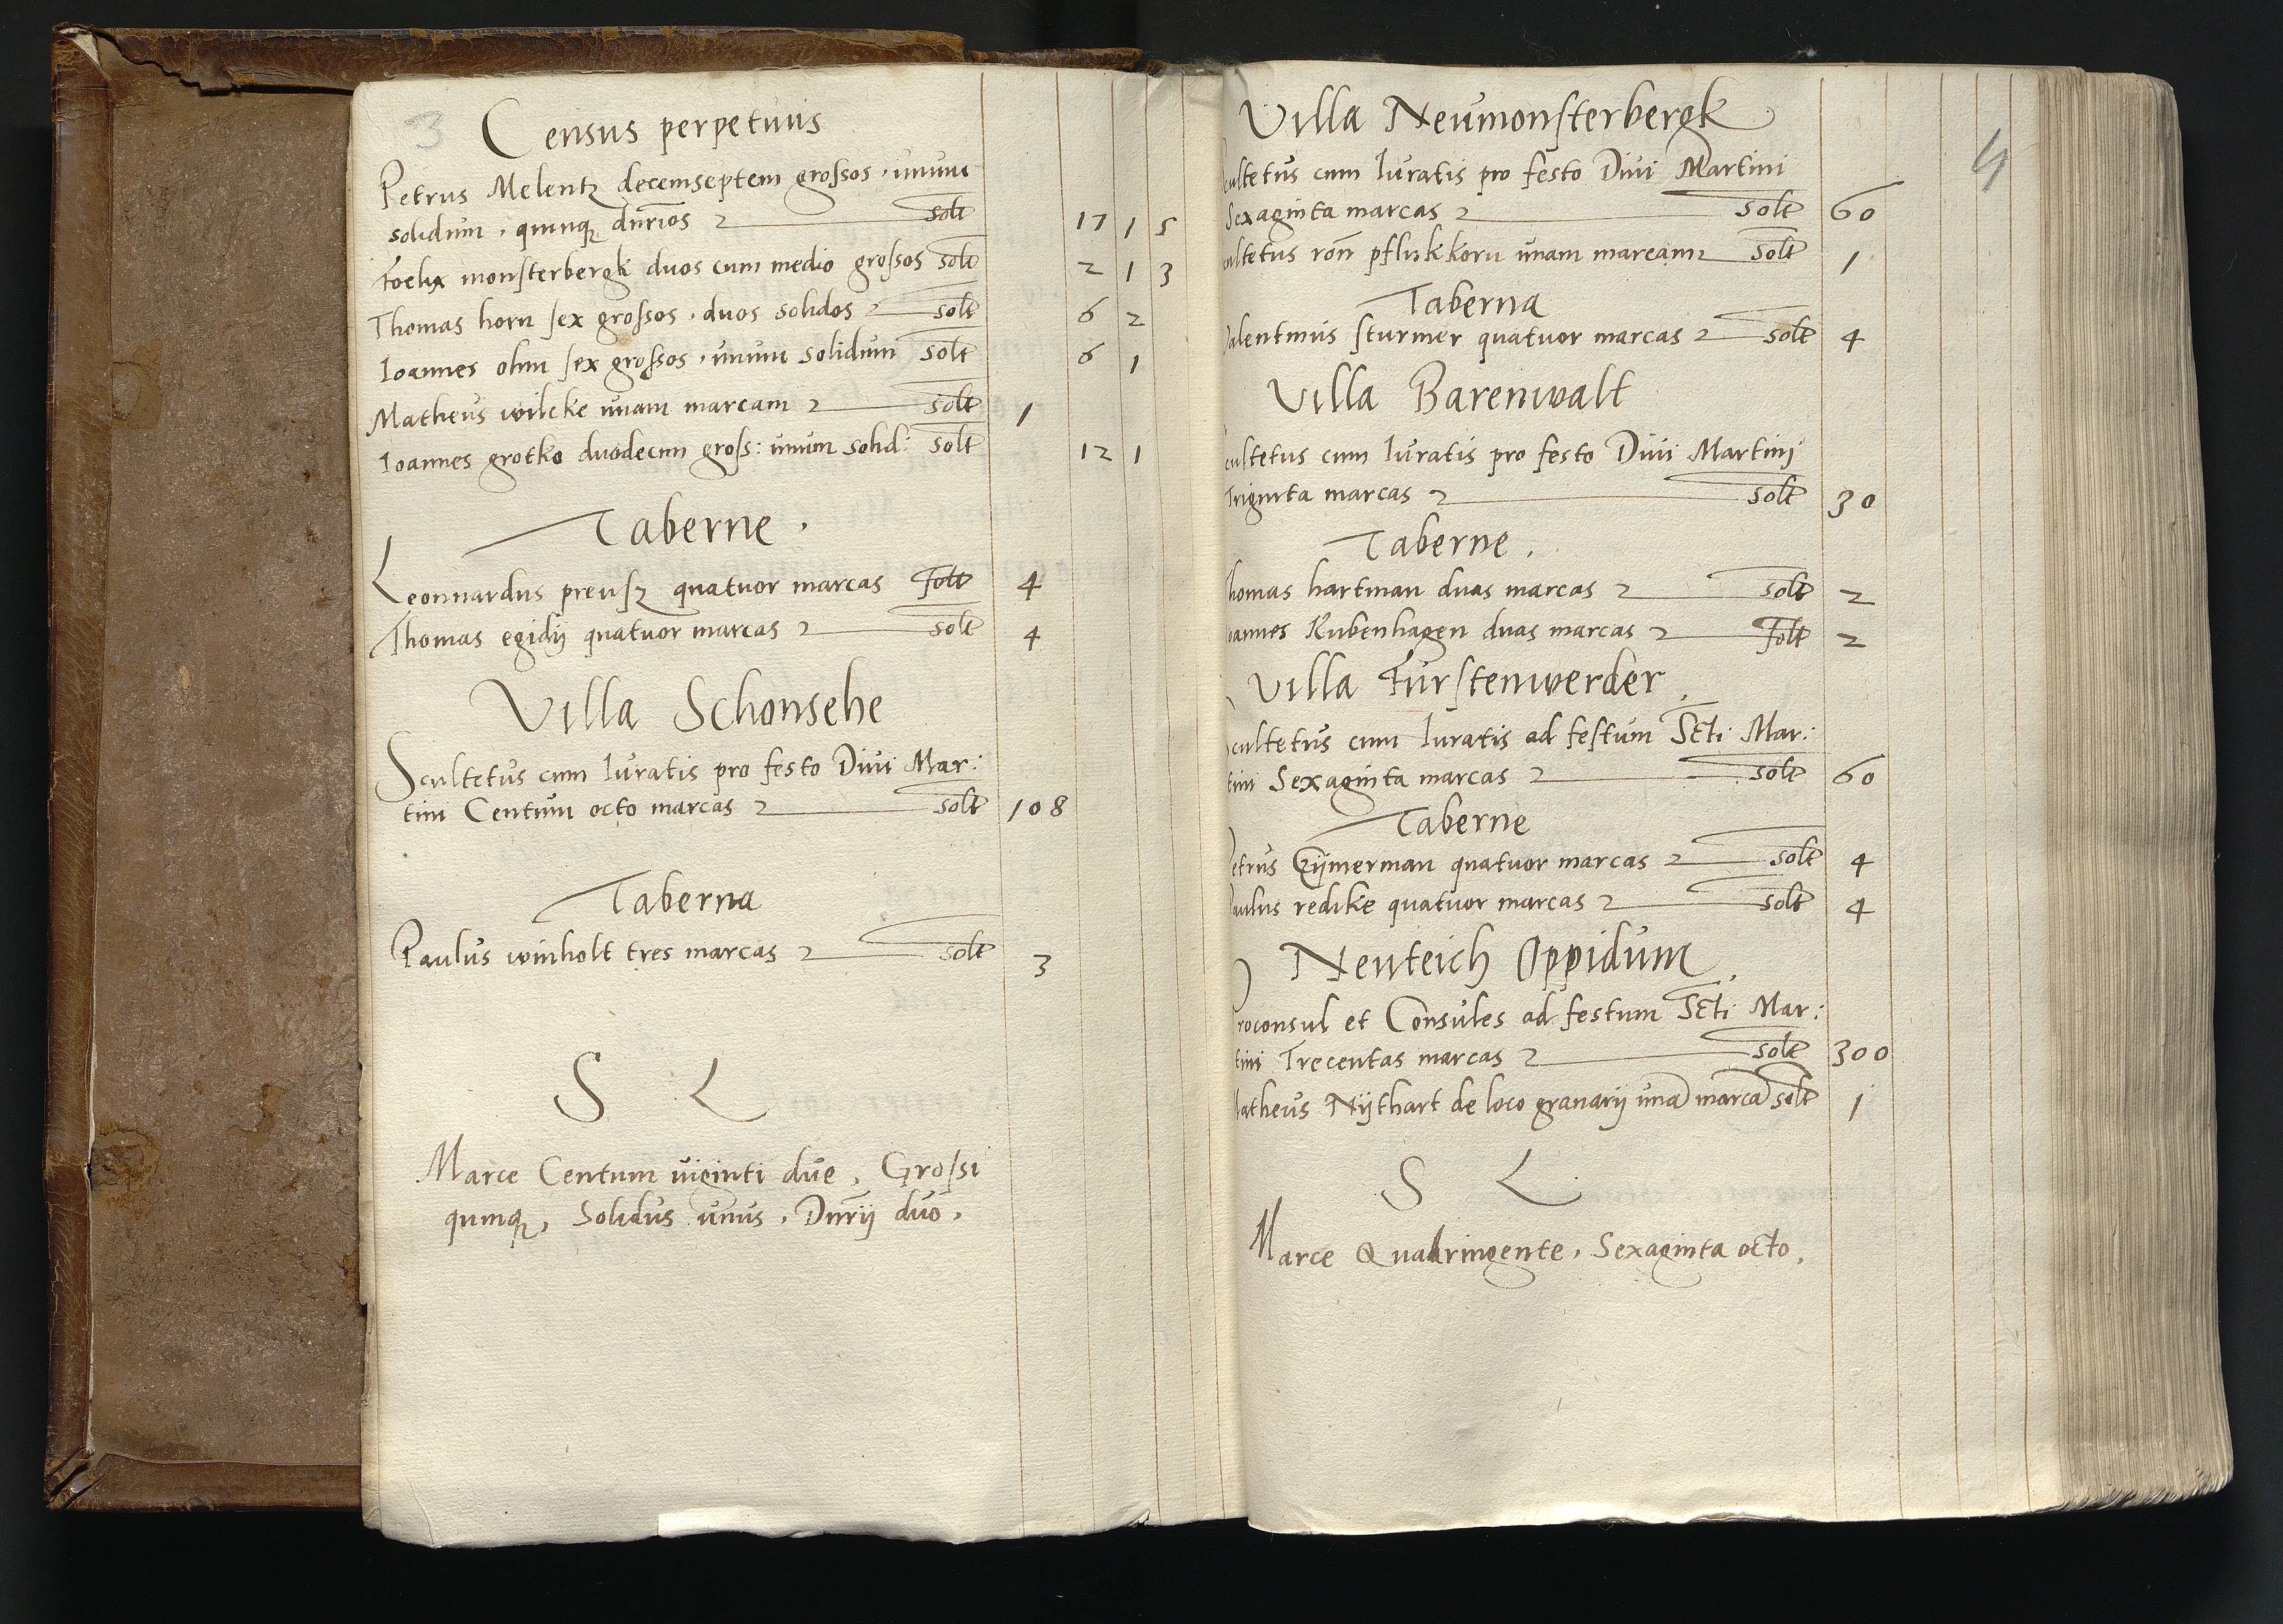 3
Census perpetuus
Petrus Melentz decemseptem grossos . unum
solidum . quinq; dnrios solt 17 1 5
Foelix monsterbergk duos cum medio grossos solt 2 1 3
Thomas horn sex grossos . duos solidos solt 6 2
Ioannes ohm sex grossos . unum solidum solt 6 1
Matheus wilcke unam marcam solt 1
Ioannes grotko duodecim gross: unum solid: solt 12 1
Taberne .
Leonnardus preusz quatuor marcas solt 4
Thomas egidij quatuor marcas solt 4
Villa Schonsehe
Scultetus cum Iuratis pro festo Diui Mar:
tini Centum octo marcas solt 108
Taberna
Paulus winholt tres marcas solt 3
S L
Marce Centum uiginti due, Grossi
quinq;, Solidus unus, Dnrij duo.
4
Villa Neumonsterbergk
cultetus cum Iuratis pro festo Diui Martini
Sexaginta marcas solt 60
cultetus ron pflukkorn unam marcam solt 1
Taberna
alentinus sturmer quatuor marcas solt 4
Villa Barenwalt
cultetus cum Iuratis pro festo Diui Martinj
Triginta marcas solt 30
Taberne .
homas hartman duas marcas solt 2
oannes Rubenhagen duas marcas solt 2
Villa Furstenwerder .
Scultetus cum Iuratis ad festum Scti Mar:
tini Sexaginta marcas solt 60
Taberne
etrus Czijmerman quatuor marcas solt 4
aulus redike quatuor marcas solt 4
Neuteich Oppidum .
Proconsul et Consules ad festum Scti Mar:
tini Trecentas marcas solt 300
atheus Nijthart de loco granarij una marca solt 1
S L
Marce Quadringente, Sexaginta octo.